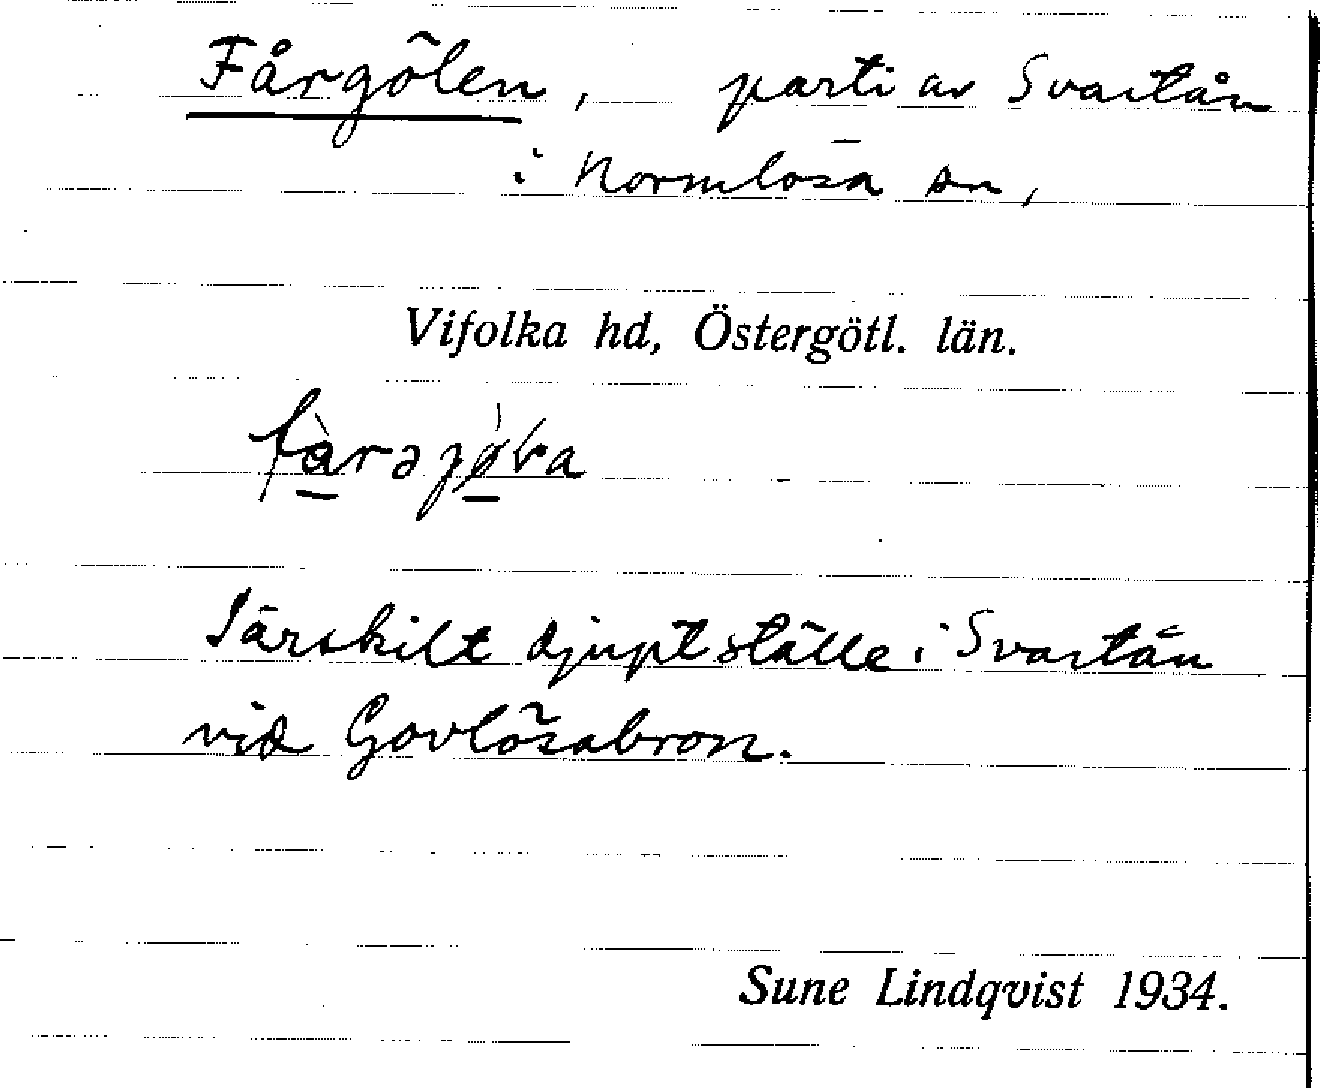 Fårgölen, parti av Svartån
i Normlösa sn,
Vifolka hd, Östergötl. län.
Särskilt djupt ställe i Svartån
vid Govlösabron.
Sune Lindqvist 1934.